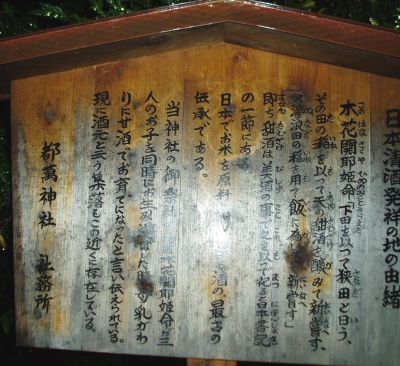 日本清酒発祥の地の由緒
木花開耶姫命「卜田を以つて狭田と曰う、
その田の稲を以つて天の甜酒を醸みて新嘗す、
又渟浪田の稲を用て飯に 新嘗す」
即ち甜酒は美酒の事で之を以て 日本書記
の一節にある
日本でお米を原料 酒の、最古の
伝承である。
当神社の御祭 木花開耶姫命が三
人のお子を同時にお生 母乳がわ
りに甘酒でお育てになったと言い伝えられている。
現に酒元と云う集落もこの近くに存在している。
都萬神社 社務所